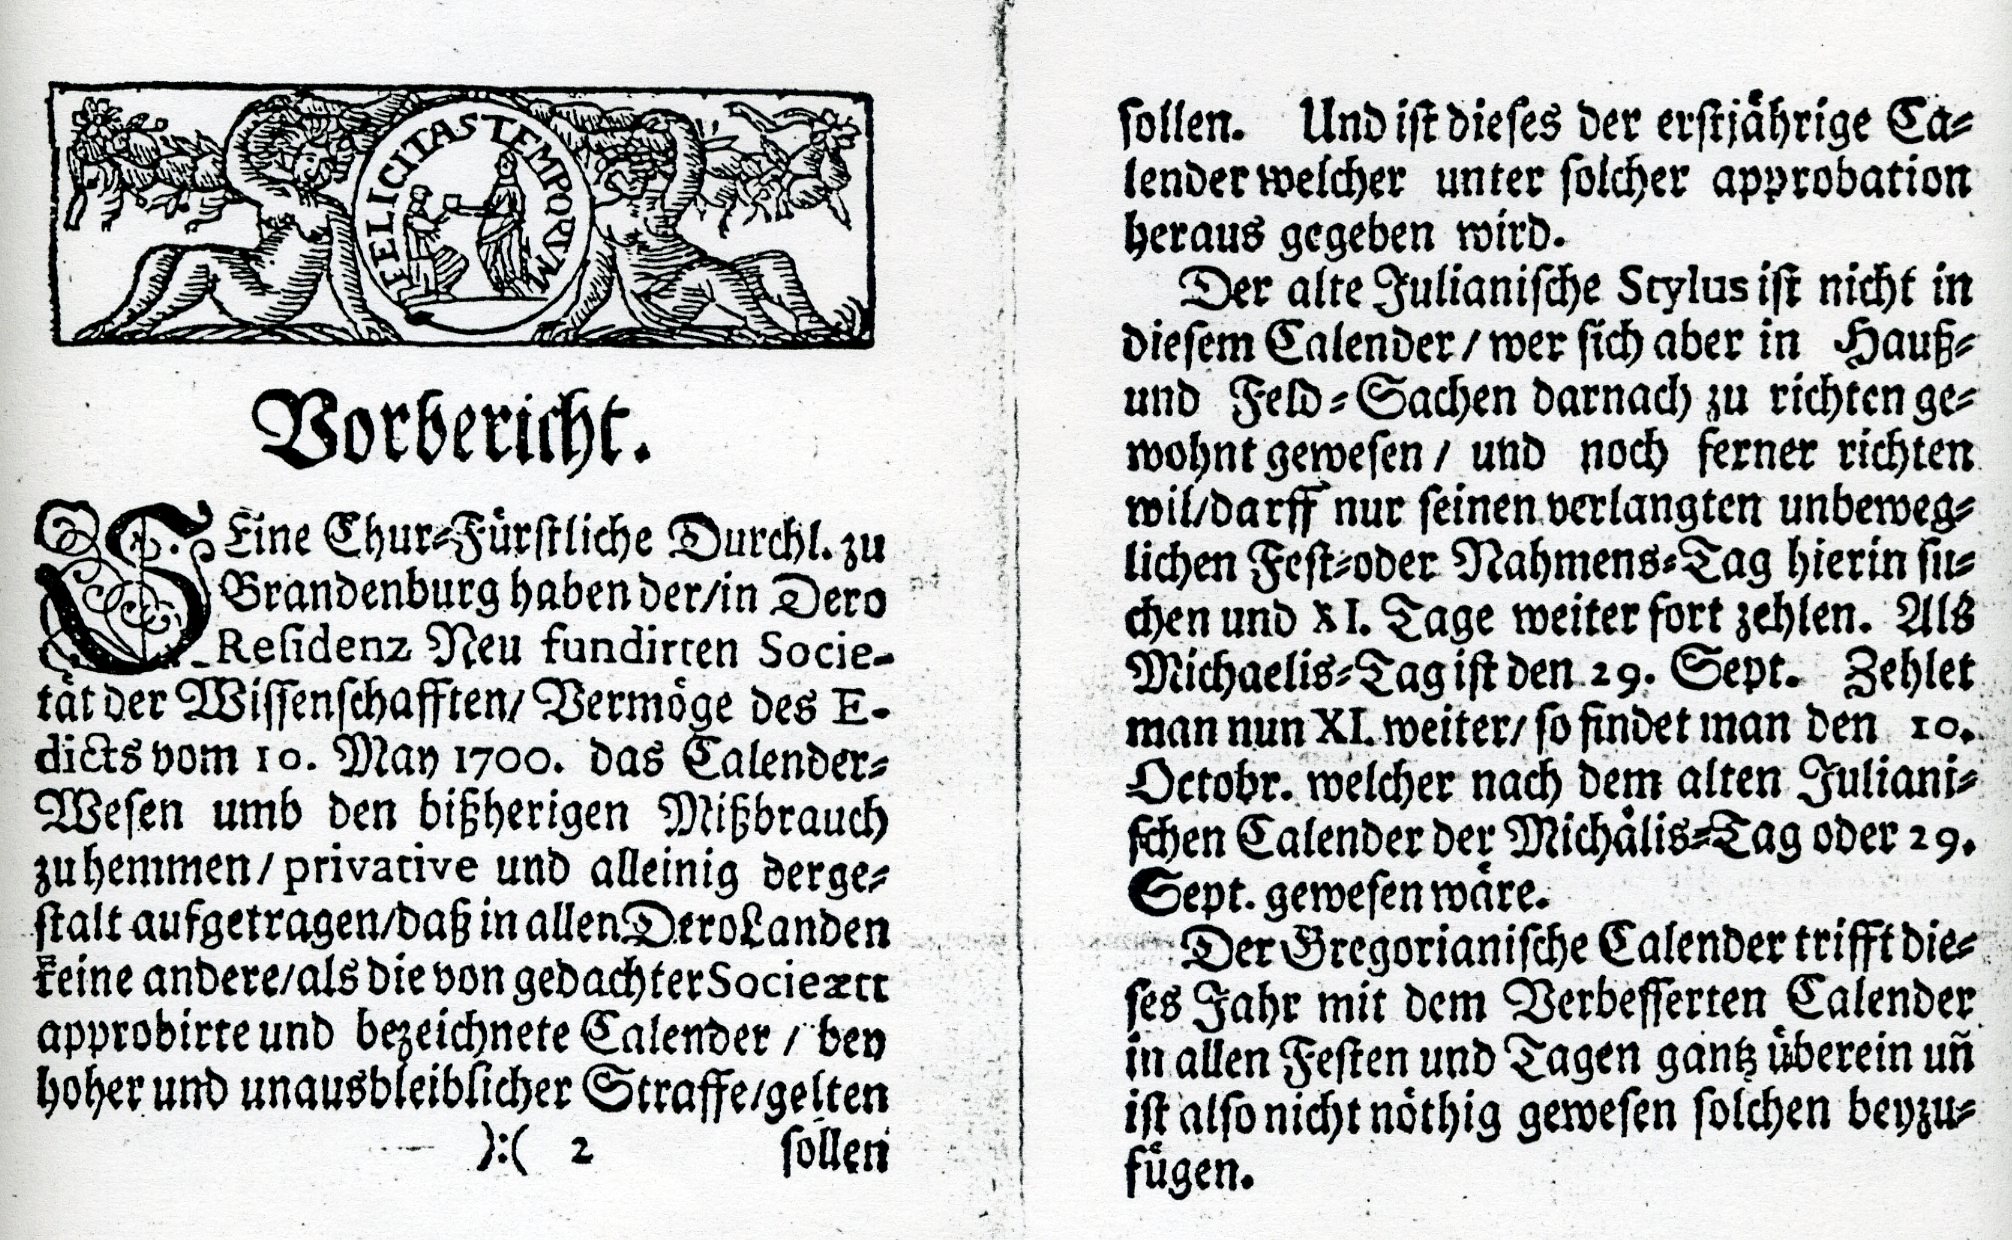 FELICITAS TEMPORUM
Vorbericht.
SEine Chur-Fürstliche Durchl. zu
Brandenburg haben der/in Dero
Residenz Neu fundirten Socie-
tät der Wissenschafften/ Vermöge des E-
dicts vom 10. May 1700. das Calender-
Wesen umb den bißherigen Mißbrauch
zu hemmen/ privative und alleinig derge-
stalt aufgetragen/daß in allen Dero Landen
keine andere/als die von gedachter Societät
approbirte und bezeichnete Calender / bey
hoher und unausbleiblicher Straffe/gelten
):( 2 sollen
sollen. Und ist dieses der erstjährige Ca-
lender welcher unter solcher approbation
heraus gegeben wird.
Der alte Julianische Stylus ist nicht in
diesem Calender/ wer sich aber in Hauß-
und Feld-Sachen darnach zu richten ge-
wohnt gewesen / und noch ferner richten
wil/darff nur seinen verlangten unbeweg-
lichen Fest-oder Nahmens-Tag hierin su-
chen und XI. Tage weiter fort zehlen. Als
Michaelis-Tag ist den 29. Sept. Zehlet
man nun XI. weiter/ so findet man den 10.
Octobr. welcher nach dem alten Juliani-
schen Calender der Michälis-Tag oder 29.
Sept. gewesen wäre.
Der Gregorianische Calender trifft die-
ses Jahr mit dem Verbesserten Calender
in allen Festen und Tagen gantz überein uñ
ist also nicht nöthig gewesen solchen beyzu-
fügen.